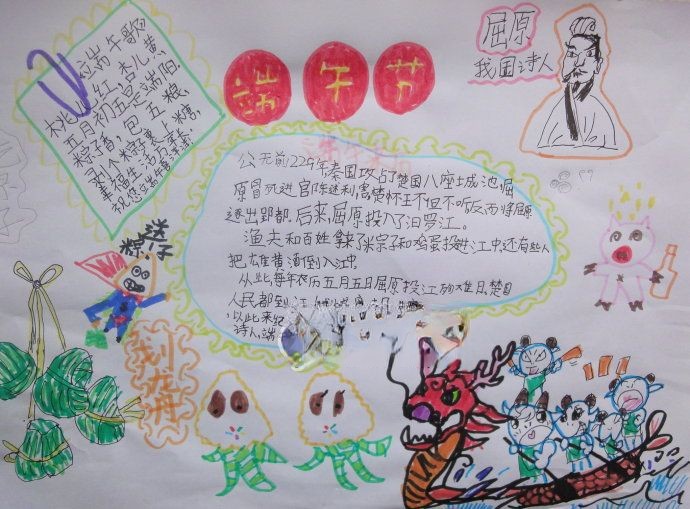 端午歌
桃儿红,杏儿黄,
五月初五是端阳,
粽子香,包五粮,
剥个粽子裹上糖,
幸福生活万年长,
端午节
屈原
我国诗人
公元前229年秦国攻占了楚国八座城池屈
原冒死进宫陈述利害楚怀王不但不听反而将屈原
逐出郢都,后来,屈原投入了汨罗江。
渔夫和百姓拿了米粽子和鸡蛋投进江中,还有些人
把雄黄酒倒入江中,
从此,每年农历五月五日屈原投江殉难日,楚国
人民都到江
以此来纪
诗人,端
粽子
划龙舟